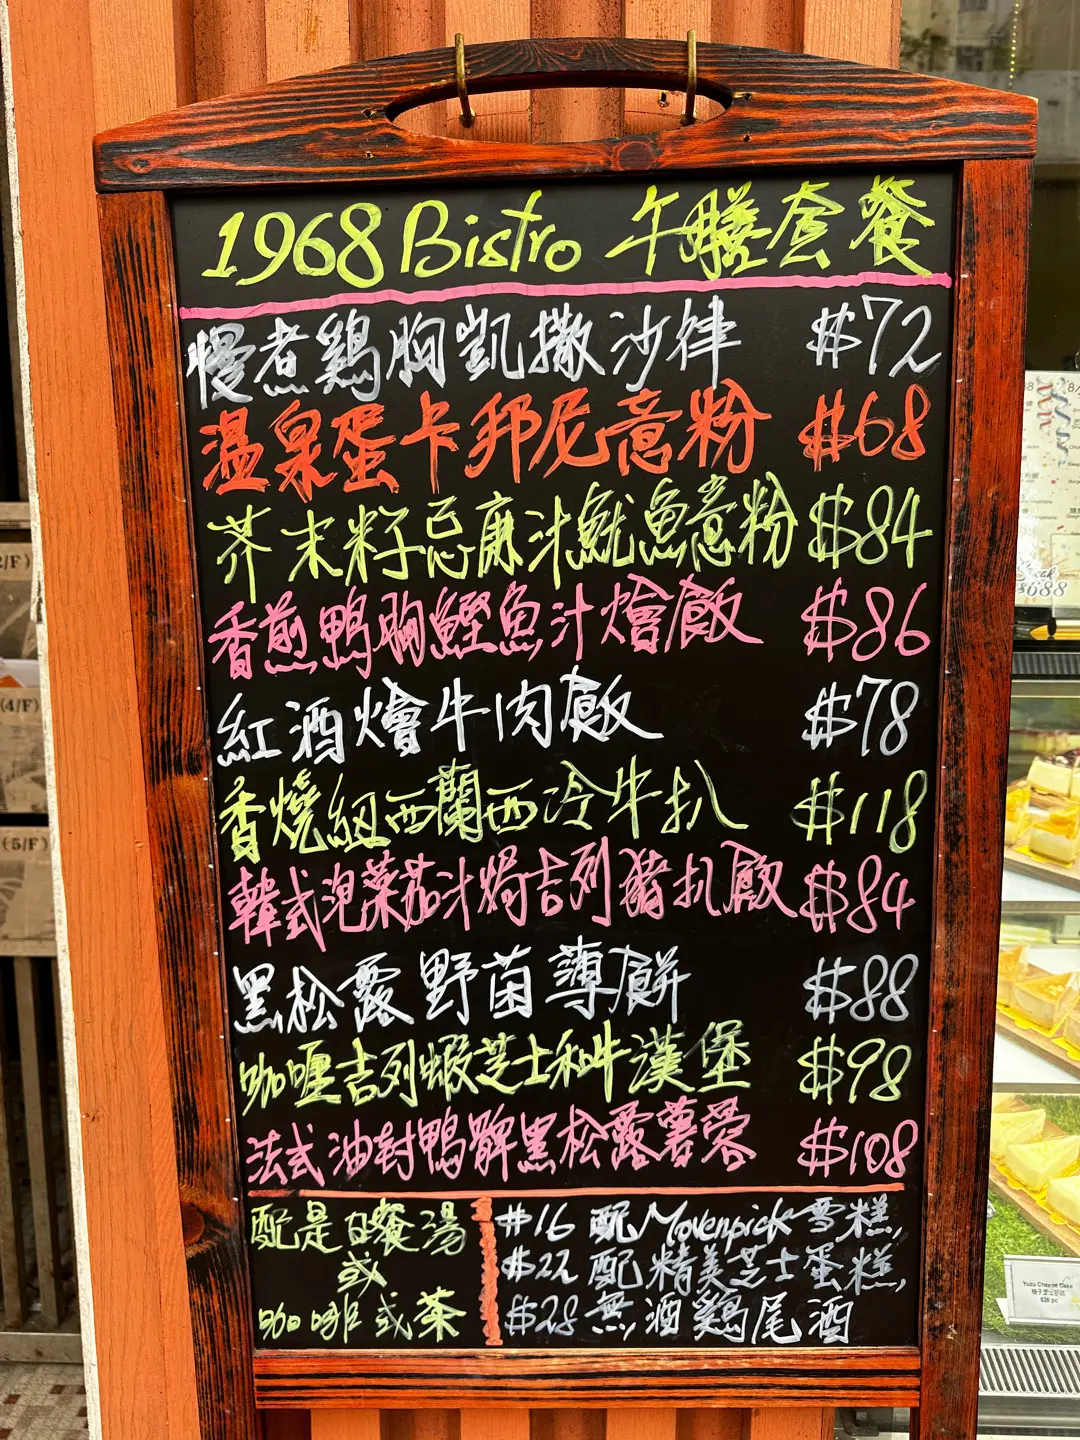 1968 Bistro 午膳套餐
慢煮鷄胸凱撒沙律 $72
温泉蛋卡邦尼意粉 $68
芥末籽忌廉汁魷魚意粉 $84
香煎鴨胸鰹魚汁燴飯 $86
紅酒燴牛肉飯 $78
香燒紐西蘭西冷牛扒 $118
韓式泡菜茄汁焗吉列豬扒飯 $84
黑松露野菌薄餅 $88
咖喱吉列蝦芝士和牛漢堡 $98
法式油封鴨髀黑松露薯蓉 $108
配是日餐湯
或
咖啡或茶
$16 配 Movenpick 雪糕,
$22 配精美芝士蛋糕,
$28 無酒鷄尾酒
2/F)
(4/F)
(5/F)
$688
Yuzu Cheese Cake